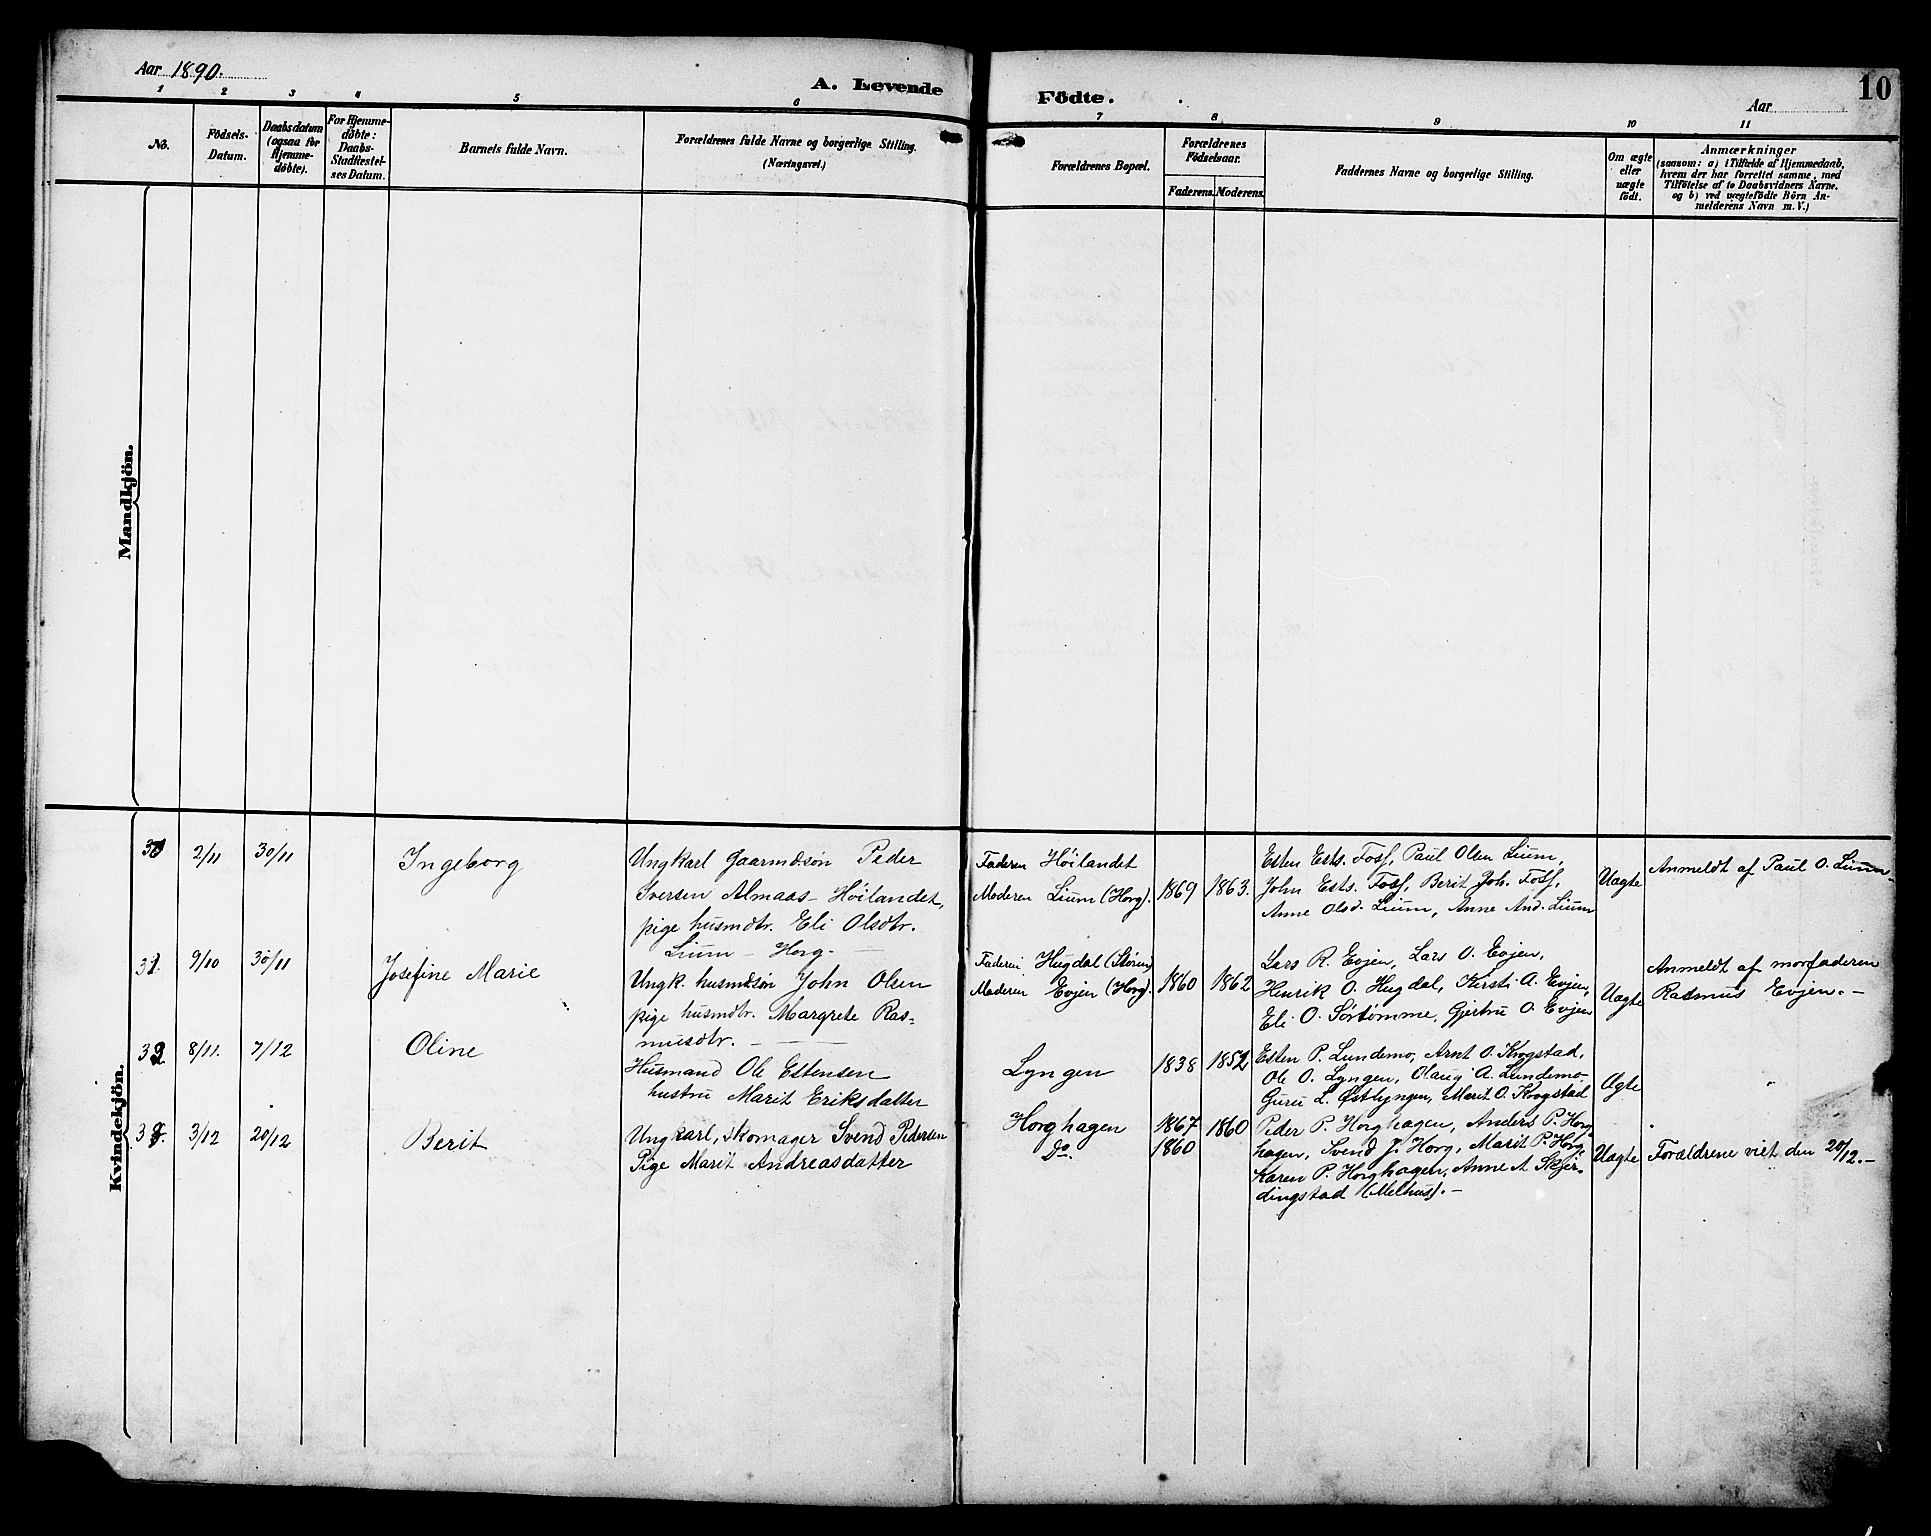 Aar 1890.
A. Levende Födte.
Aar
10
1 2 3 4 5 6 7 8 9 10 11
No.
Födsels-
Datum.
Daabsdatum
(ogsaa for
Hjemme-
döbte).
For Hjemme-
döbte:
Daabs-
Stadfæstel-
ses Datum.
Barnets fulde Navn.
Forældrenes fulde Navne og borgerlige Stilling.
(Næringsvei.)
Forældrenes Bopæl.
Forældrenes
Födselsaar.
Faderens. Moderens.
Faddernes Navne og borgerlige Stilling.
Om ægte
eller
uægte
födt.
Anmærkninger
(saasom: a) i Tilfælde af Hjemmedaab,
hvem der har forrettet samme, med
Tilföielse af to Daabsvidners Navne,
og b) ved uægtefödte Börn An-
melderens Navn m. V.)
Mandkjön.
Kvindekjön.
2/11 30/11 Ingeborg
Ungkarl Gaarmdsön Peder
Iversen Almaas - Höilandet,
pige husmdtr. Eli Olsdtr.
Lium - Horg.
Faderen Höilandet
Moderen Lium (Horg).
1869 1863.
Esten Ests. Foss, Paul Olsen Lium,
John Ests. Foss, Berit Joh. Foss,
Anne Olsd. Lium, Anne And. Lium
Uægte
Anmeldt af Paul O. Lium.
31. 9/10 30/11 Josefine Marie
Ungk. husmdsön John Olsen
pige husmdtr. Margrete Ras-
musdtr.
Faderen Hugdal (Stören)
Moderen Evjen (Horg).
1860 1862
Lars R. Evjen, Lars O. Evjen,
Henrik O. Hugdal, Kersti A. Evjen,
Eli O. Sörtömme, Gjertru O. Evjen
Uægte
Anmeldt af morfaderen
Rasmus Evjen. -
32. 8/11. 7/12 Oline
Husmand Ole Estensen
hustru Marit Eriksdatter
Lyngen
1838 1852
Esten P. Lundemo, Arnt O. Krogstad,
Ole O. Lyngen, Olaug A. Lundemo
Guru L. Østlyngen, Marit O. Krogstad
Ægte
3/12 20/12 Berit
Ungkarl, skomager Svend Pedersen
Pige Marit Andreasdatter
Horghagen
Do.
1867 1860
1860
Peder P. Horghagen, Anders P. Horg-
hagen, Svend J. Horg, Marit P. Horg,
Karen P. Horghagen, Anne A Skjer-
dingstad (Melhus). -
Uægte
Forældrene viet den 20/12. -